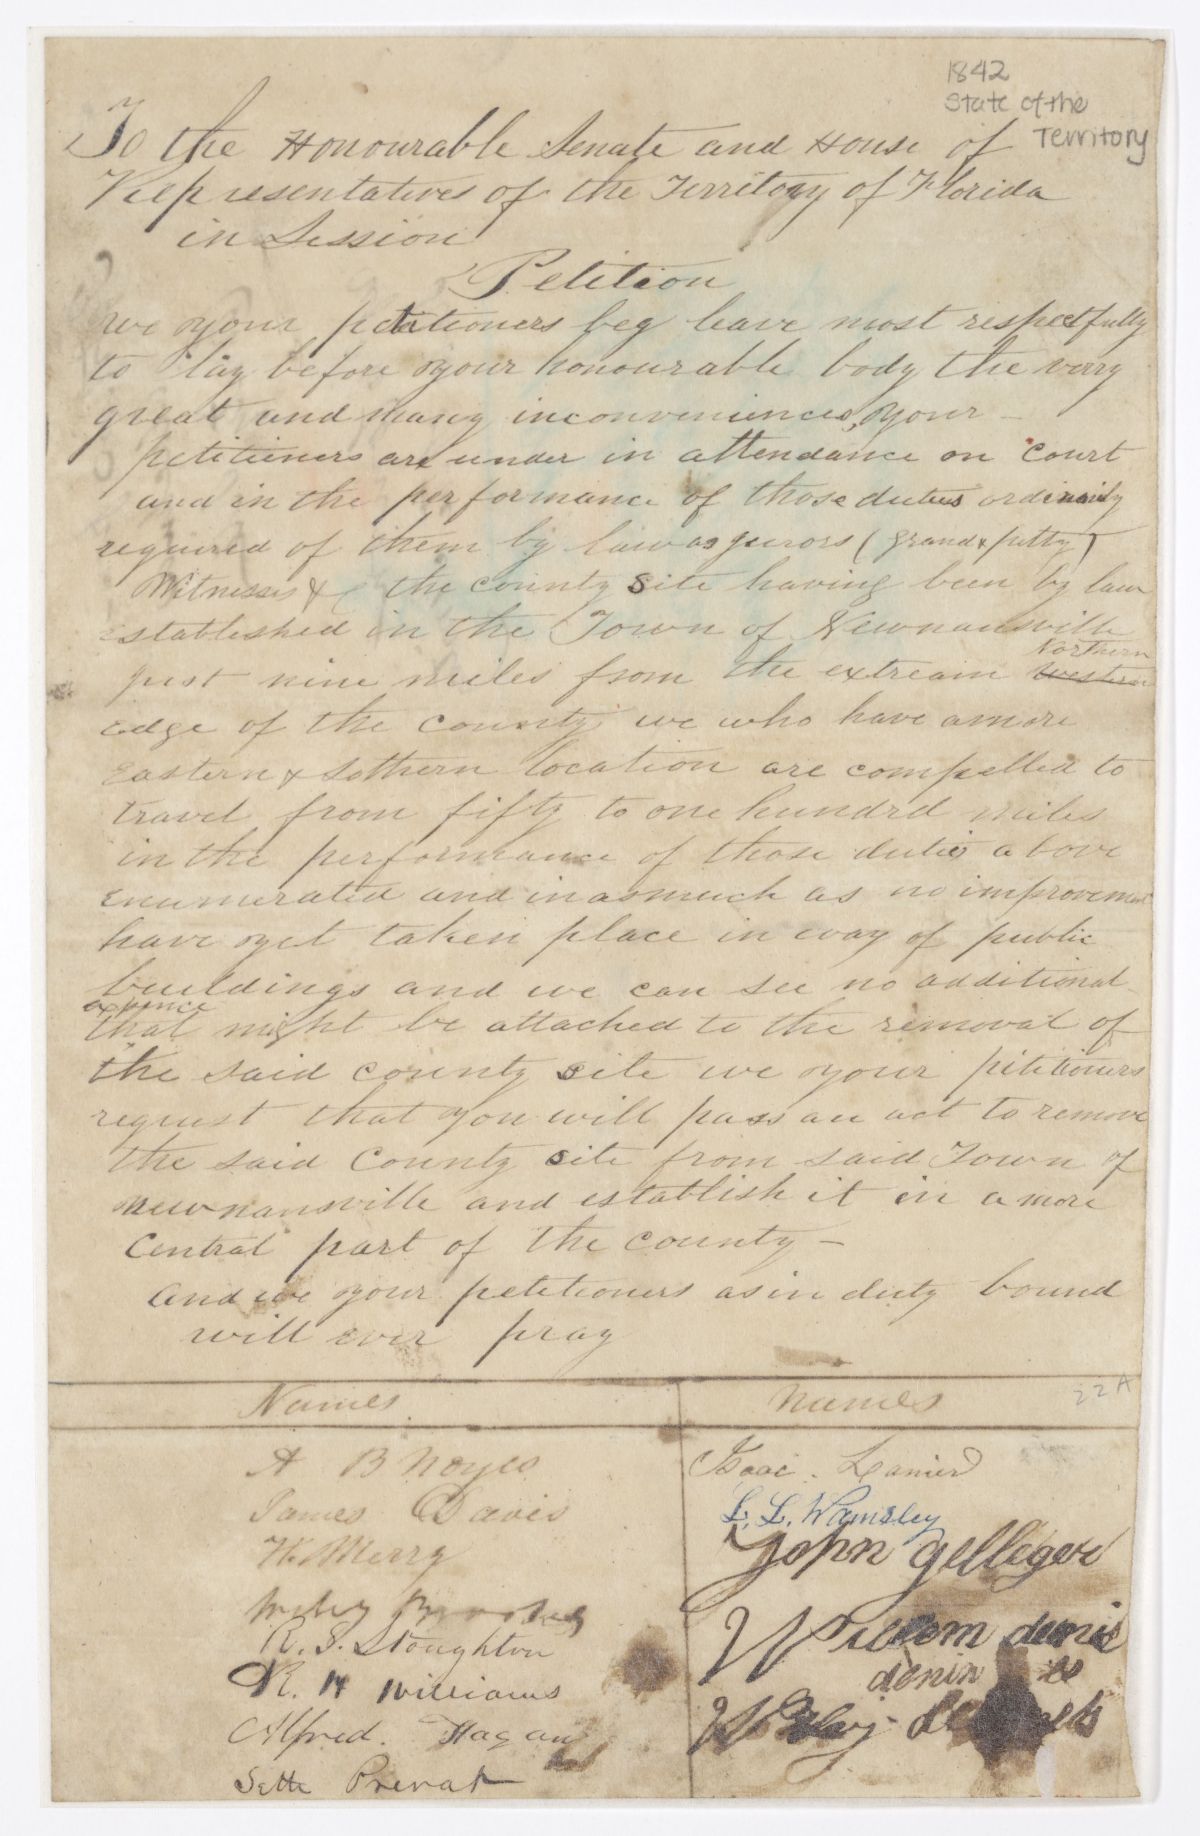 1842
State of the
Territory
To the Honourable Senate and House of
Representatives of the Territory of Florida
in Session
Petition
we your petitioners beg leave most respectfully
to lay before your honourable body the verry
great and many inconveniences, your
petitieners are under in attendance on Court
and in the performance of those duties ordinarily
required of them by law as jurors (grand & petty)
Witnesses &c the county site having been by law
established in the Town of Newnansville
Northern
just nine miles from the extream western
edge of the county we who have a more
Eastern & Sothern location are compelled to
travel from fifty to one hundrd miles
in the performance of those duties above
enumerated and inasmuch as no improvement
have yet taken place in way of public
buildings and we can see no additional
expence
that might be attached to the removal of
the said county site we your pititioners
request that you will pass an act to remove
the said County site from said Town of
Newnansville and establish it in a more
Central part of the county —
and we your petetioners as in duty bound
will ever pray
Names
Names
22A
A B Noyes
James Davis
H. Merry
R. S. Stoughton
R. H Williams
Alfred. Hagan
Sette Prevat
Isaac. Lanier
L. L. Wamsley
John gelleger
Willem denis
denin